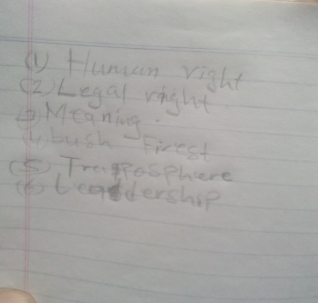 (1) Human right
(2) Legal right
(3) Meaning.
(4) bush Firest
(5) Tropposphere
(6) Leadership